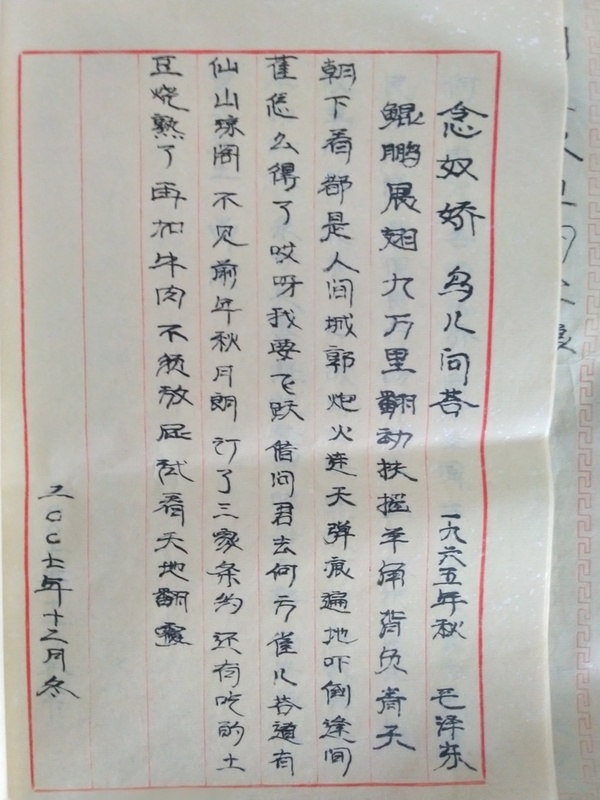 念奴娇 鸟儿问答 一九六五年秋 毛泽东
鲲鹏展翅九万里翻动扶摇羊角背负青天
朝下看都是人间城郭炮火连天弹痕遍地吓倒蓬间
雀怎么得了哎呀我要飞跃借问君去何方雀儿答道有
仙山琼阁不见前年秋月朗订了三家条约还有吃的土
豆烧熟了再加牛肉不须放屁试看天地翻覆
二〇〇七年十二月冬